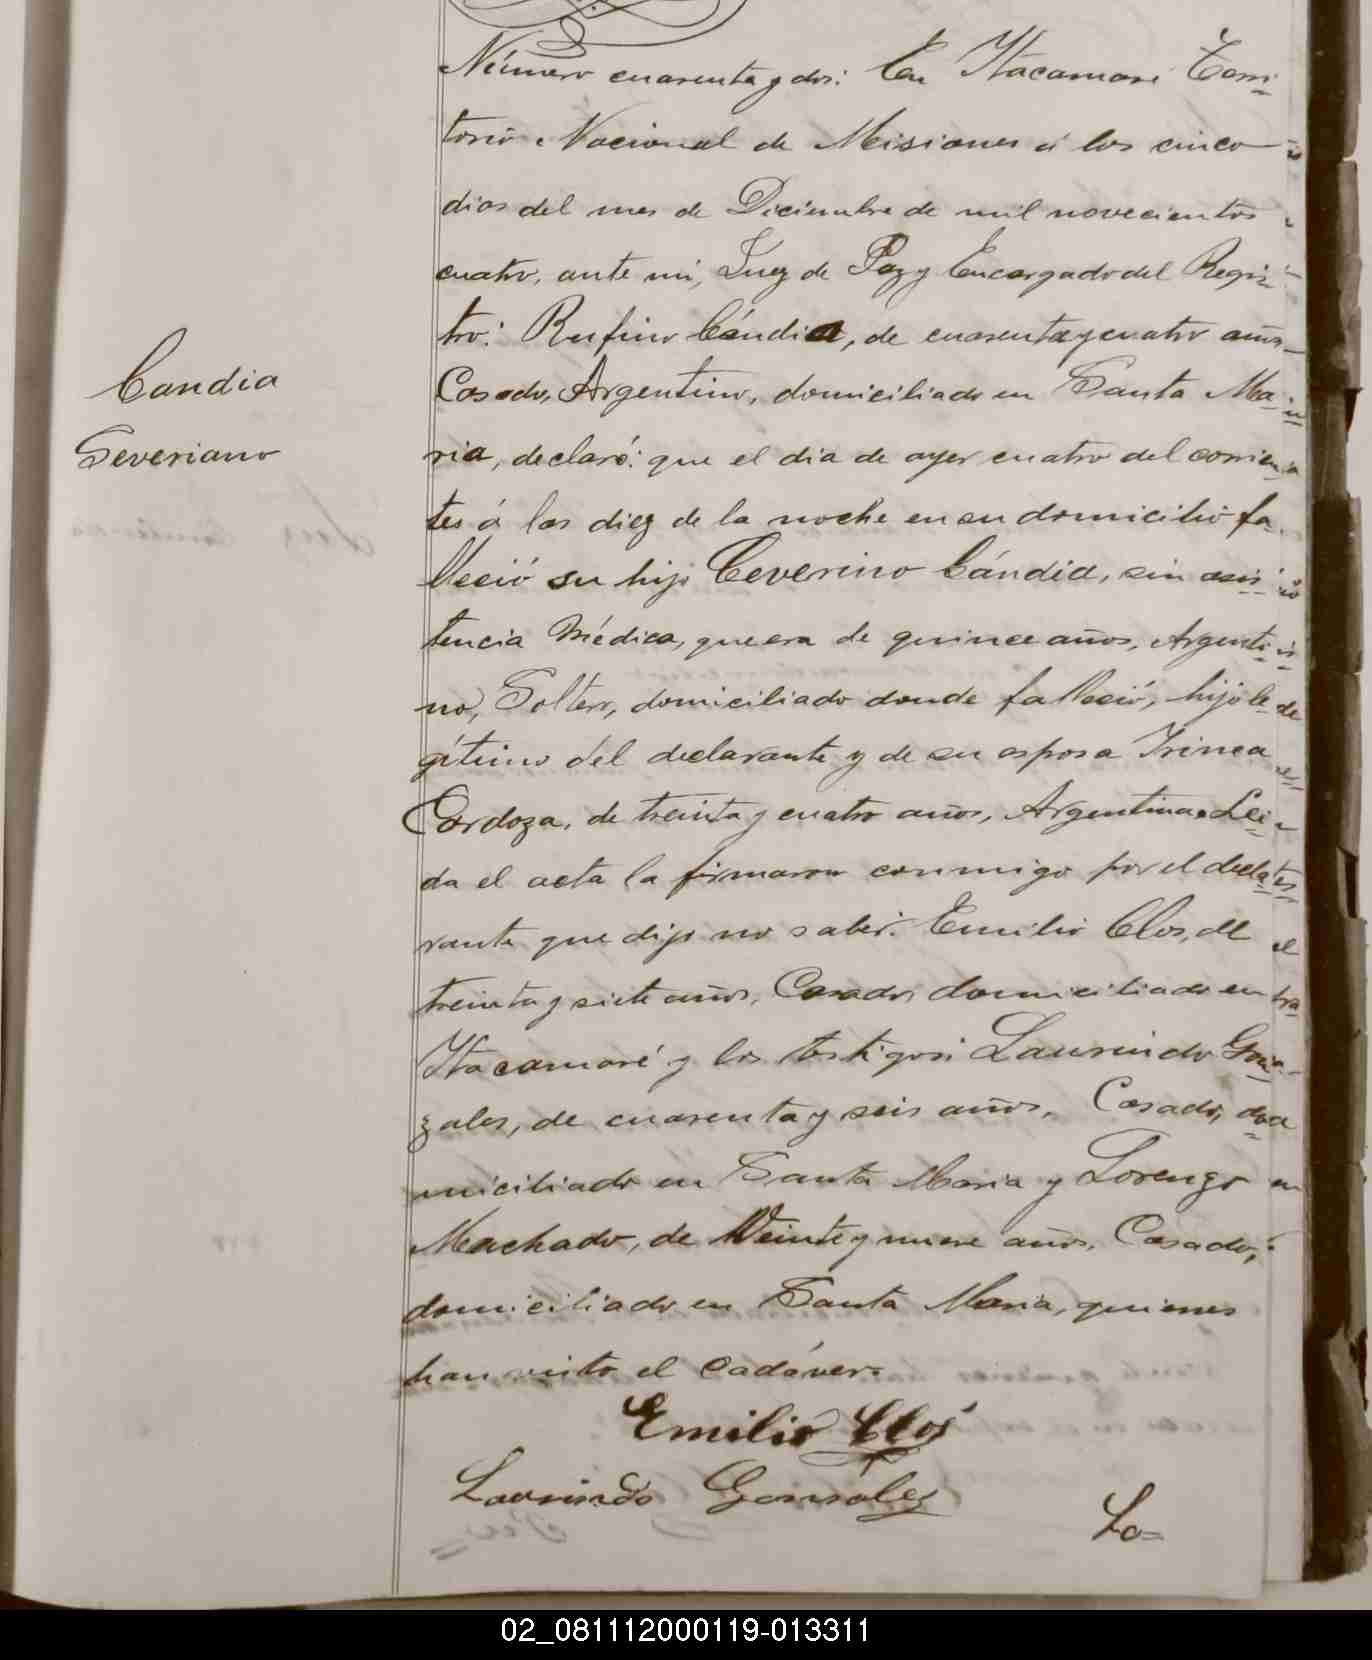 Número cuarenta y dos: En Itacamaré Terri-
torio Nacional de Misiones á los cinco
dias del mes de Diciembre de mil novecientos
cuatro, ante mi, Juez de Paz y Encargado del Regis-
tro: Rufino Cándia, de cuarenta y cuatro años
Candia
Casado, Argentino, domiciliado en Santa Ma-
Severiano
ria, declaró: que el dia de ayer cuatro del corrien-
tes á las diez de la noche en su domicilio fa-
lleció su hijo Ceverino Cándia, sin asis-
tencia Médica, que era de quince años, Argenti-
no, Soltero, domiciliado donde falleció, hijo le-
gítimo del declarante y de su esposa Irinea
Cardoza, de treinta y cuatro años, Argentina. Lei-
da el acta la firmaron conmigo por el decla-
rante que dijo no saber: Emilio Clos, de
treinta y siete años, Casado, domiciliado en
Itacamaré y los testigos: Laurindo Gon-
zales, de cuarenta y seis años, Casado, do-
miciliado en Santa Maria y Lorenzo
Machado, de Veinte y nueve años, Casado,
domiciliado en Santa Maria, quienes
han visto el cadáver.
Emilio Clos
Laurindo Gonsalez
Lo=
02_081112000119-013311